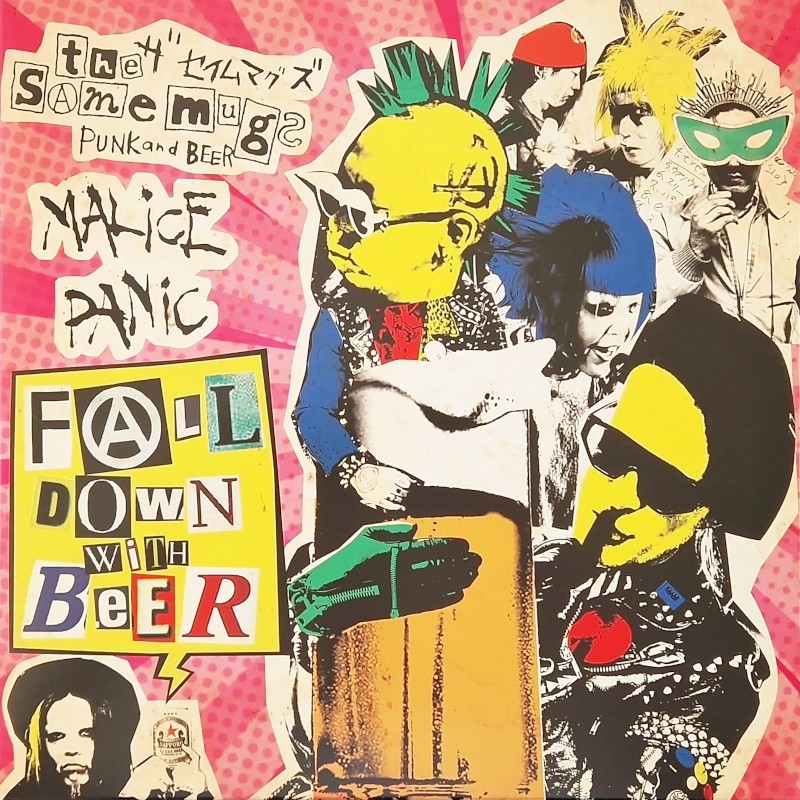 the ザ セイムマグズ
SAmemugS
PUNK and BEER
MALiCE
PANiC
FALL
DOWN
WiTH
BEER
SAPPORO